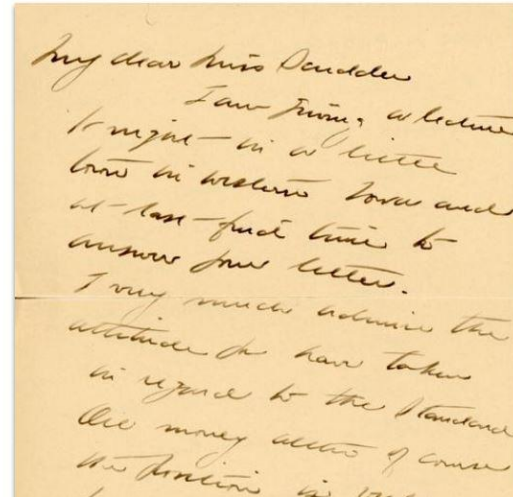 My dear Miss Scudder
I am giving a lecture
to night in a little
town in western Iowa and
at last find time to
answer your letter.
I very much admire the
attitude you have taken
in regard to the Standard
Oil money altho of course
the position is